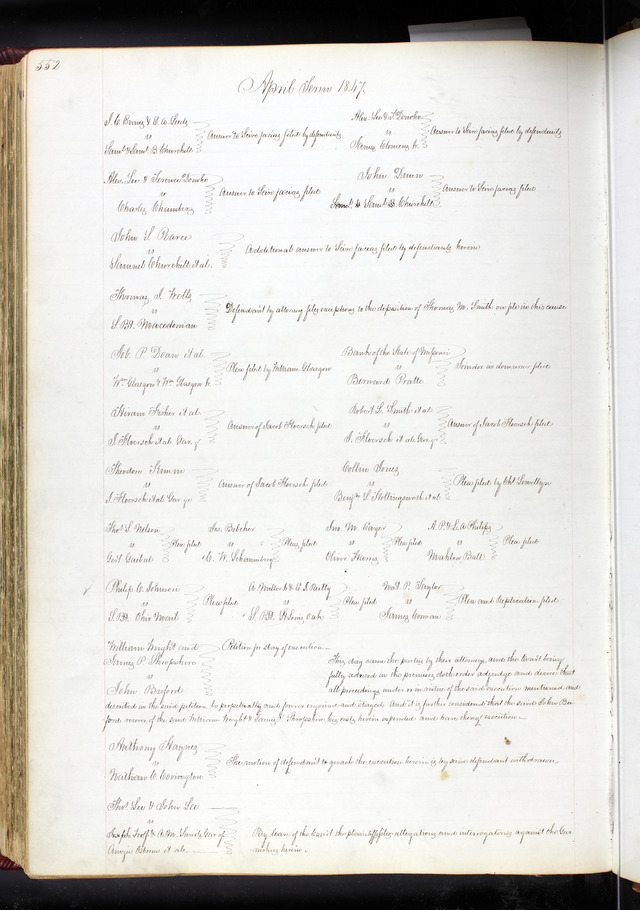 552
April Term 1847.
vs
Saml & Saml B. Churchill
Answer to Scire facias filed by defendants
Alex. Lee &
vs
James Clemens Jr.
Answer to Scire facias filed by defendants
Alex. Lee & Terence
vs
Charles Chambers
Answer to Scire facias filed
John Dunn
vs
Saml & Saml B. Churchill
Answer to Scire facias filed
John S. Pearce
vs
Samuel Churchill et al.
Additional answer to Scire facias filed by defendants herein
Thomas J.
vs
S. Bt. Macedonian
Defendant by attorney files exceptions to the deposition of Thomas M. Smith on file in this cause
Job. P. Doan et al.
vs
Wm Glasgow & Wm Glasgow Jr.
Plea filed by William Glasgow
Bank of the State of Missouri
vs
Bernard Pratte
Joinder in demurrer filed
Hiram et al
vs
et al. Gar. of
Answer of Jacob filed
Robert L. Smith et al
vs
J. et al. Gar. of
Answer of Jacob filed
Theodore
vs
J. et al Gar of
Answer of Jacob filed
Collin Jones
vs
Benjn S. Hollingsworth et al
Plea filed by Chs Lewellyn
Thos. S. Nelson
vs
Plea filed
Jas. Belcher
vs
C. W.
Pleas filed
Jno. M.
vs
Oliver Harris
Plea filed
A. P. & L. A. Philips
vs
Mahlon Ball
Plea filed
Philip C. Johnson
vs
S. Bt. Ohio Mail
Plea filed
A. Miller & C. J. Reilly
vs
S. Bt. St Louis Oak
Plea filed
Wm. P. Taylor
vs
James Cowan
Plea and Replication filed
William Wright and
James P. Shropshire
vs
John Buford
Petition for stay of execution
This day came the parties by their attorneys, and the Court being
fully advised in the premises doth order adjudge and decree that
all proceedings under or in virtue of the said execution mentioned and
described in the said petition be perpetually and forever enjoined and stayed. And it is further considered that the said John Bu-
ford recover of the said William Wright & James P. Shropshire his costs herein expended and have thereof execution.
Anthony Haynes
vs
Nathan C. Covington
The motion of defendant to quash the execution herein is by said defendant withdrawn.
Thos. Lee & John Lee
vs
Joseph & A. Gar. of
et al.
By leave of the Court the plaintiff files allegations and interrogatories against the Gar-
nishees herein.